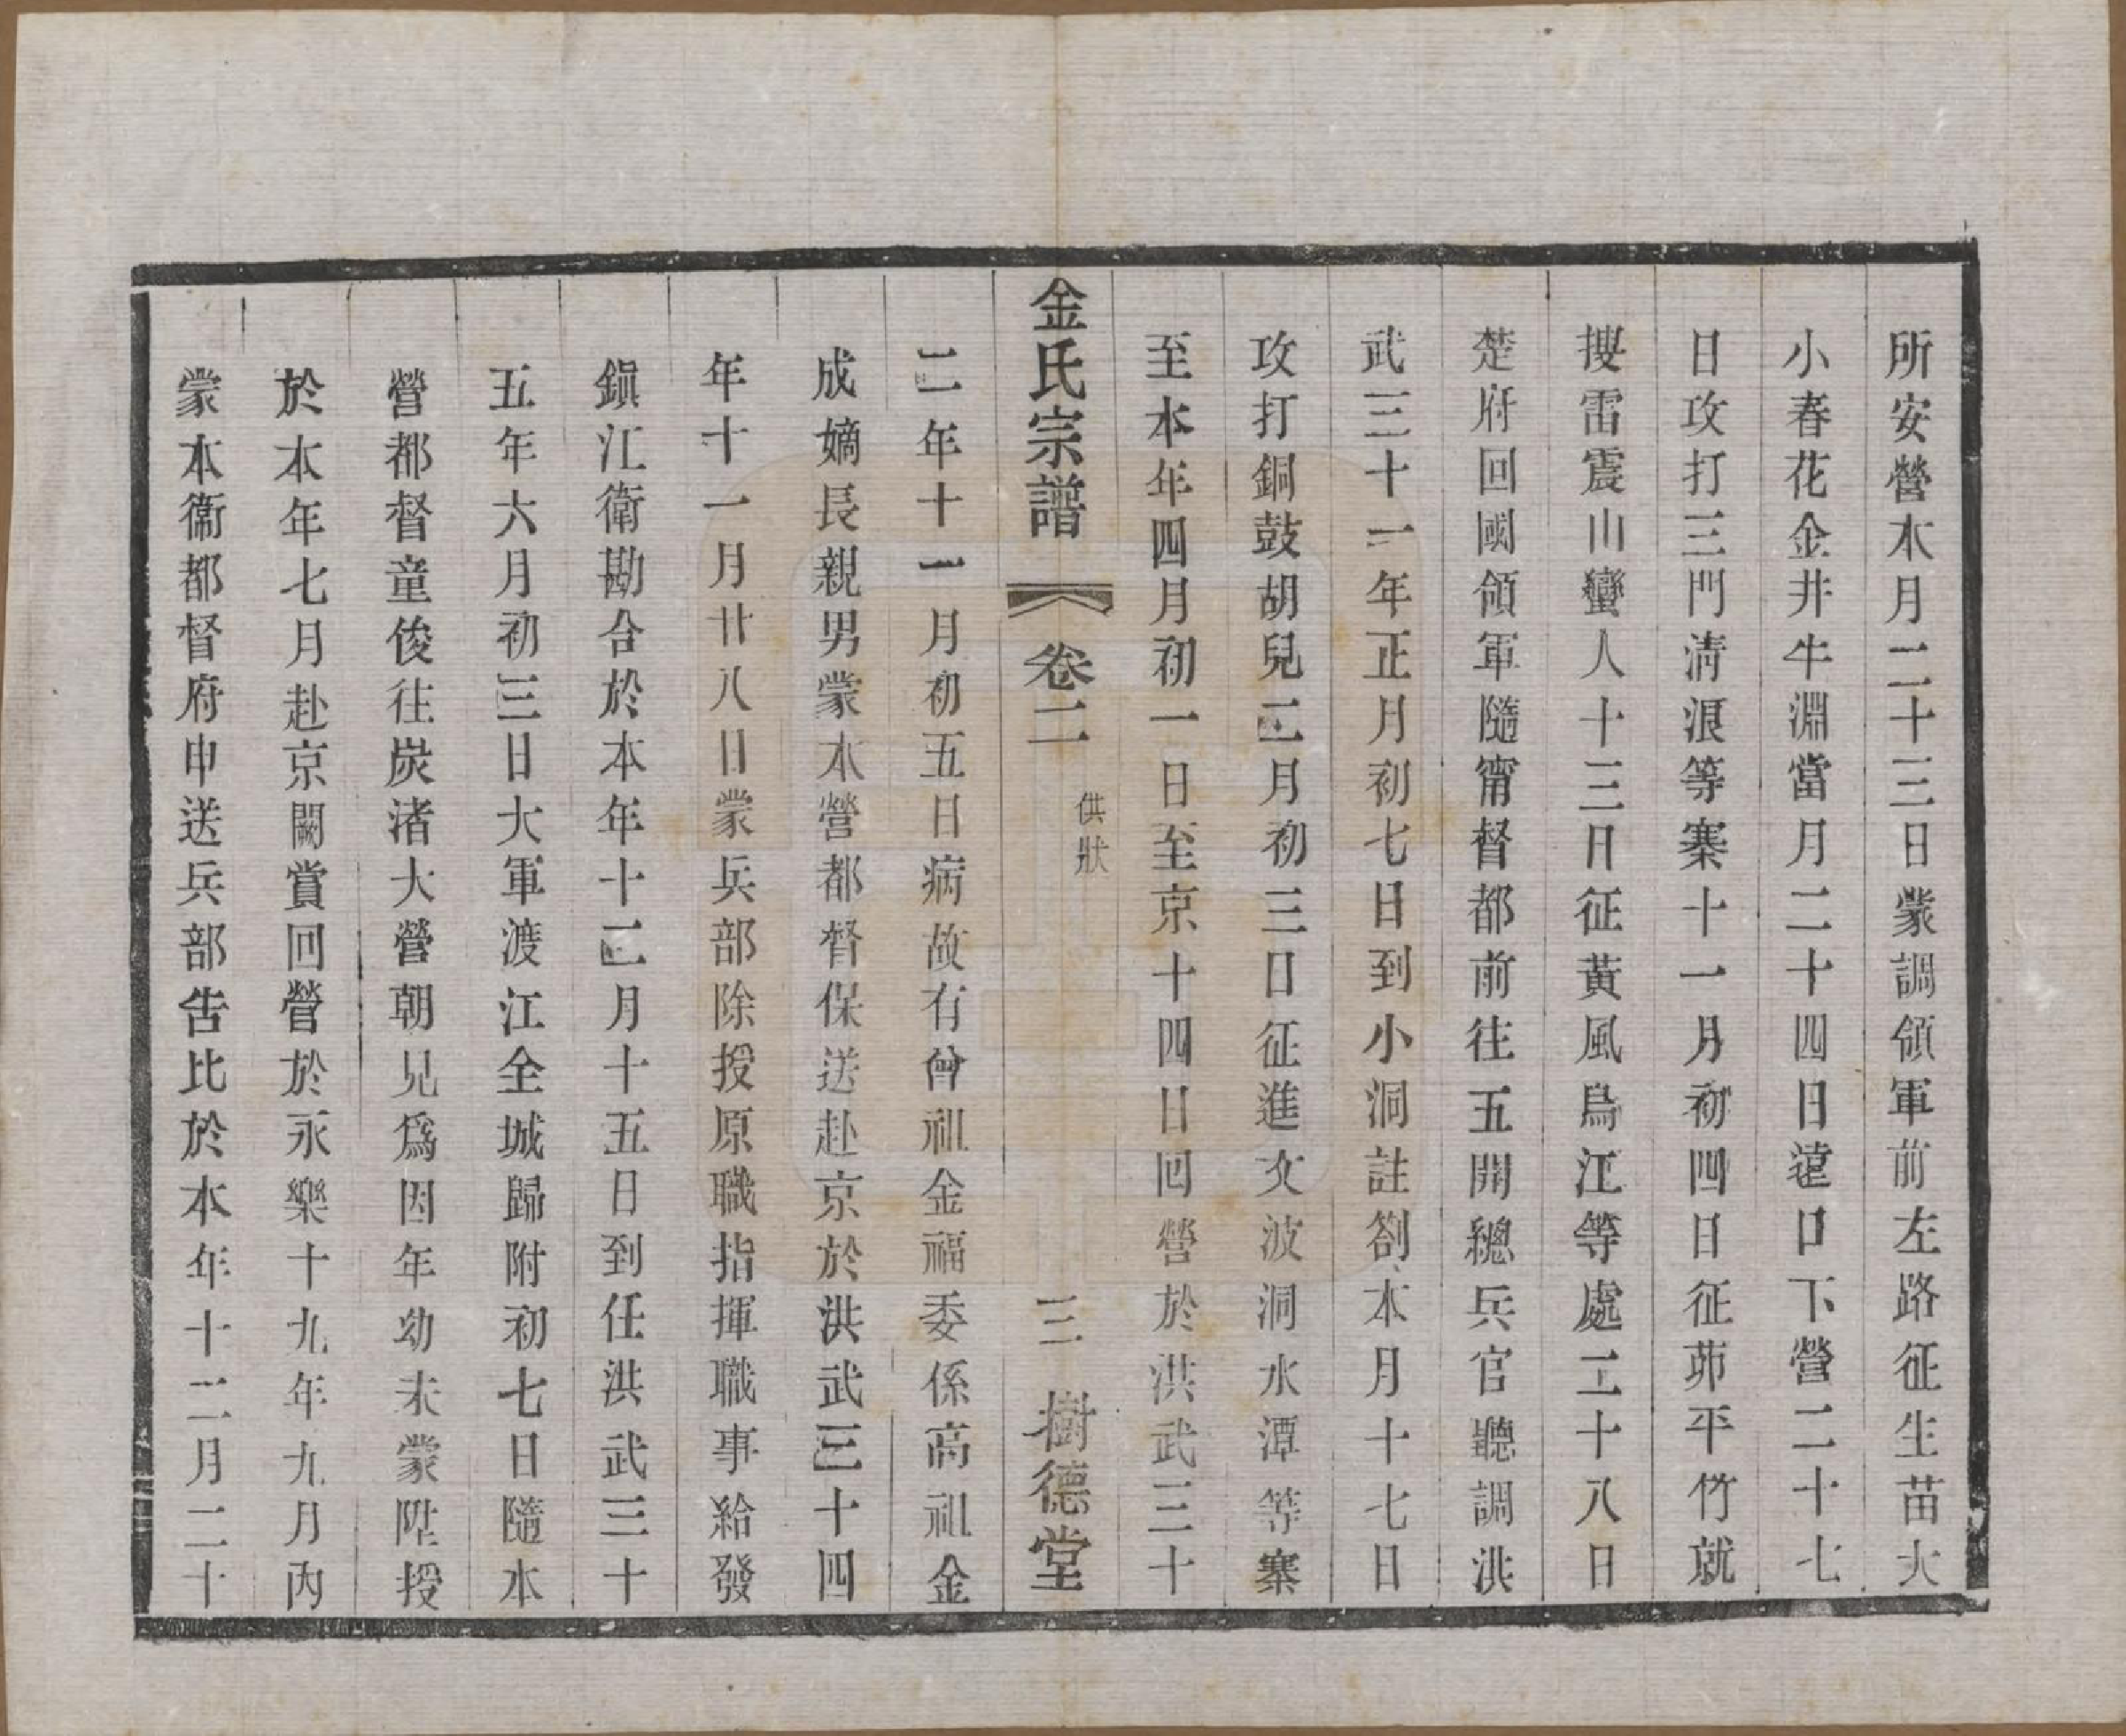 所安營本月二十三日蒙調領軍前左路征生苗大
小春花金井牛淵當月二十四日遠口下營二十七
日攻打三門清浪等寨十一月初四日征茆平竹就
搜雷震山蠻人十三日征黃風鳥江等處二十八日
楚府回國領軍隨甯督都前往五開總兵官聽調洪
武三十一年正月初七日到小洞註劄本月十七日
攻打銅鼓胡兒二月初三日征進文波洞水潭等寨
至本年四月初一日至京十四日回營於洪武三十
金氏宗譜 卷二 供狀 三 樹德堂
二年十一月初五日病故有曾祖金福委係高祖金
成嫡長親男蒙本營都督保送赴京於洪武三十四
年十一月廿八日蒙兵部除授原職指揮職事給發
鎭江衛勘合於本年十二月十五日到任洪武三十
五年六月初三日大軍渡江全城歸附初七日隨本
營都督童俊往炭渚大營朝見爲因年幼未蒙陞授
於本年七月赴京闕賞回營於永樂十九年九月內
蒙本衞都督府申送兵部告比於本年十二月二十